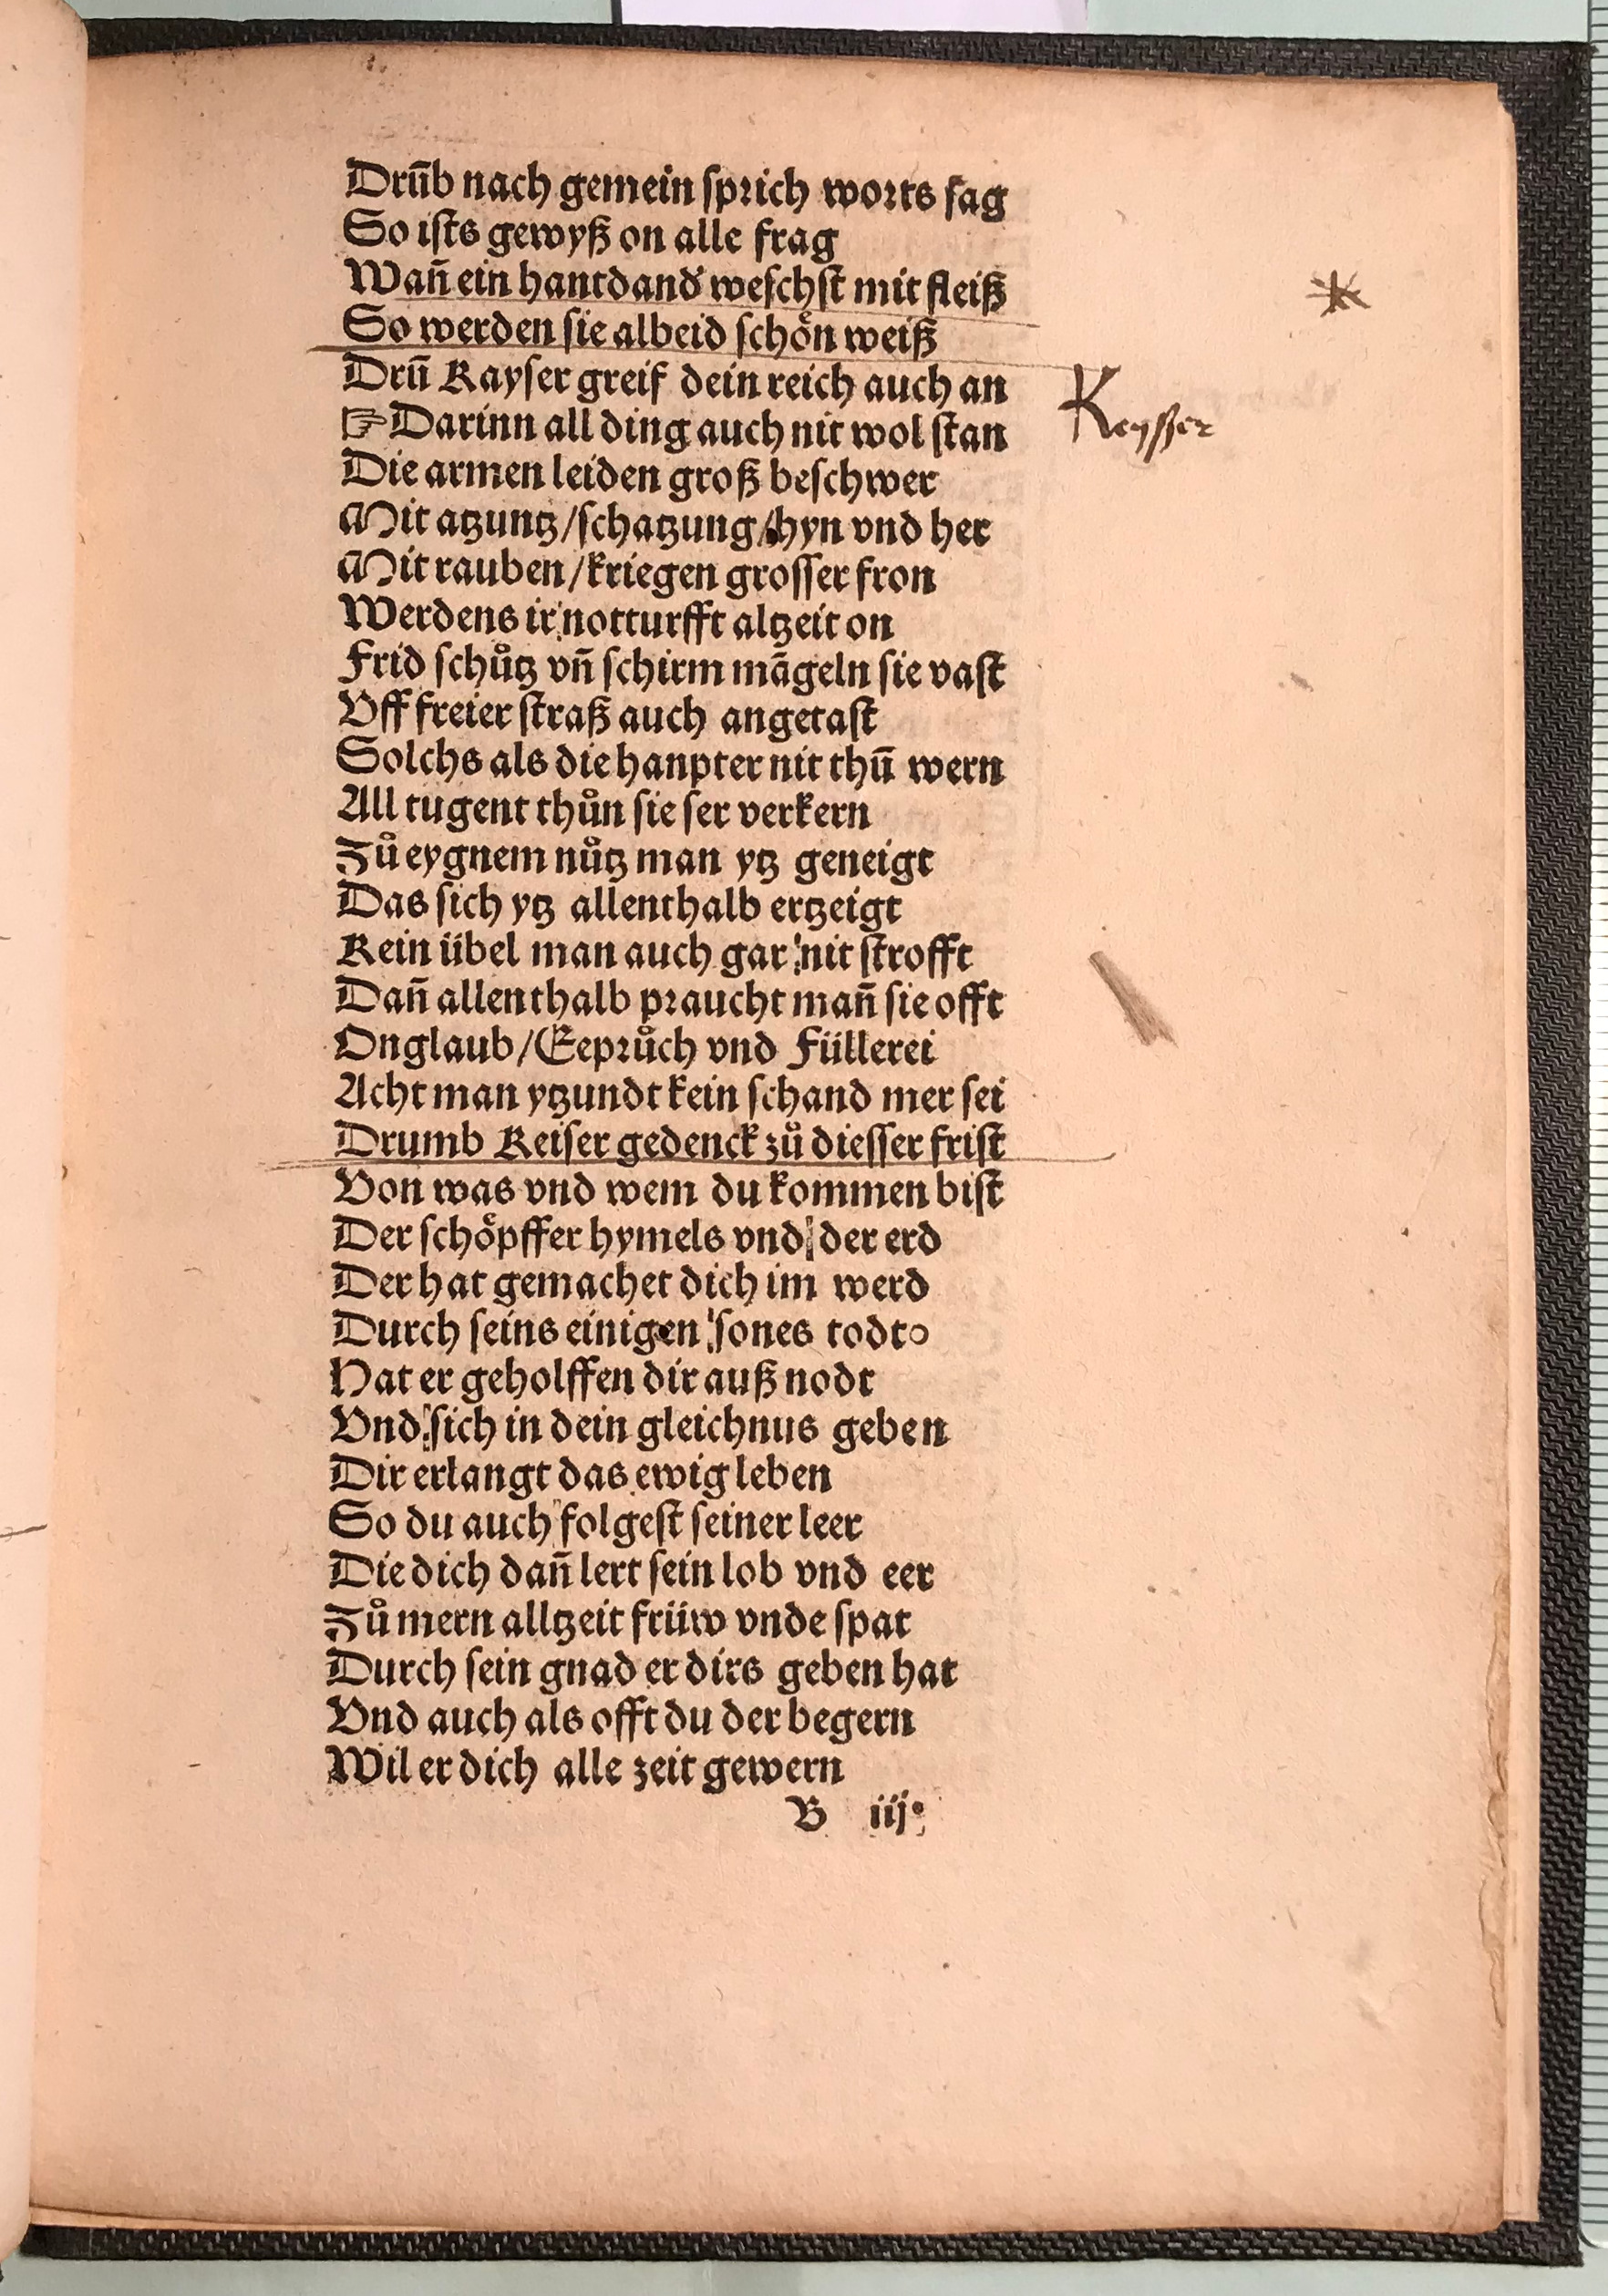 Drūb nach gemein sprich worts sag
So ists gewyß on alle frag
Wan̄ ein hant dand' weschst mit fleiß
So werden sie albeid schoͤn weiß
Drū Kayser greif dein reich auch an
Keyßer
☞Darinn all ding auch nit wol stan
Die armen leiden groß beschwer
Mit atzuntz/schatzung/hyn vnd her
Mit rauben/kriegen grosser fron
Werdens ir notturfft altzeit on
Frid schuͦtz vn̄ schirm māgeln sie vast
Vff freier straß auch angetast
Solchs als die hanpter nit thū wern
All tugent thuͦn sie ser verkern
Zuͦ eygnem nuͦtz man ytz geneigt
Das sich ytz allenthalb ertzeigt
Kein übel man auch gar nit strofft
Dan̄ allenthalb praucht man̄ sie offt
Onglaub/Eepruͦch vnd Füllerei
Acht man ytzundt kein schand mer sei
Drumb Keiser gedenck zuͦ diesser frist
Von was vnd wem du kommen bist
Der schoͤpffer hymels vnd der erd
Der hat gemachet dich im werd
Durch seins einigen sones todt
Hat er geholffen dir auß nodt
Vnd sich in dein gleichnus geben
Dir erlangt das ewig leben
So du auch folgest seiner leer
Die dich dan̄ lert sein lob vnd eer
Zuͦ mern alltzeit früw vnde spat
Durch sein gnad er dirs geben hat
Vnd auch als offt du der begern
Wil er dich alle zeit gewern
B iij.